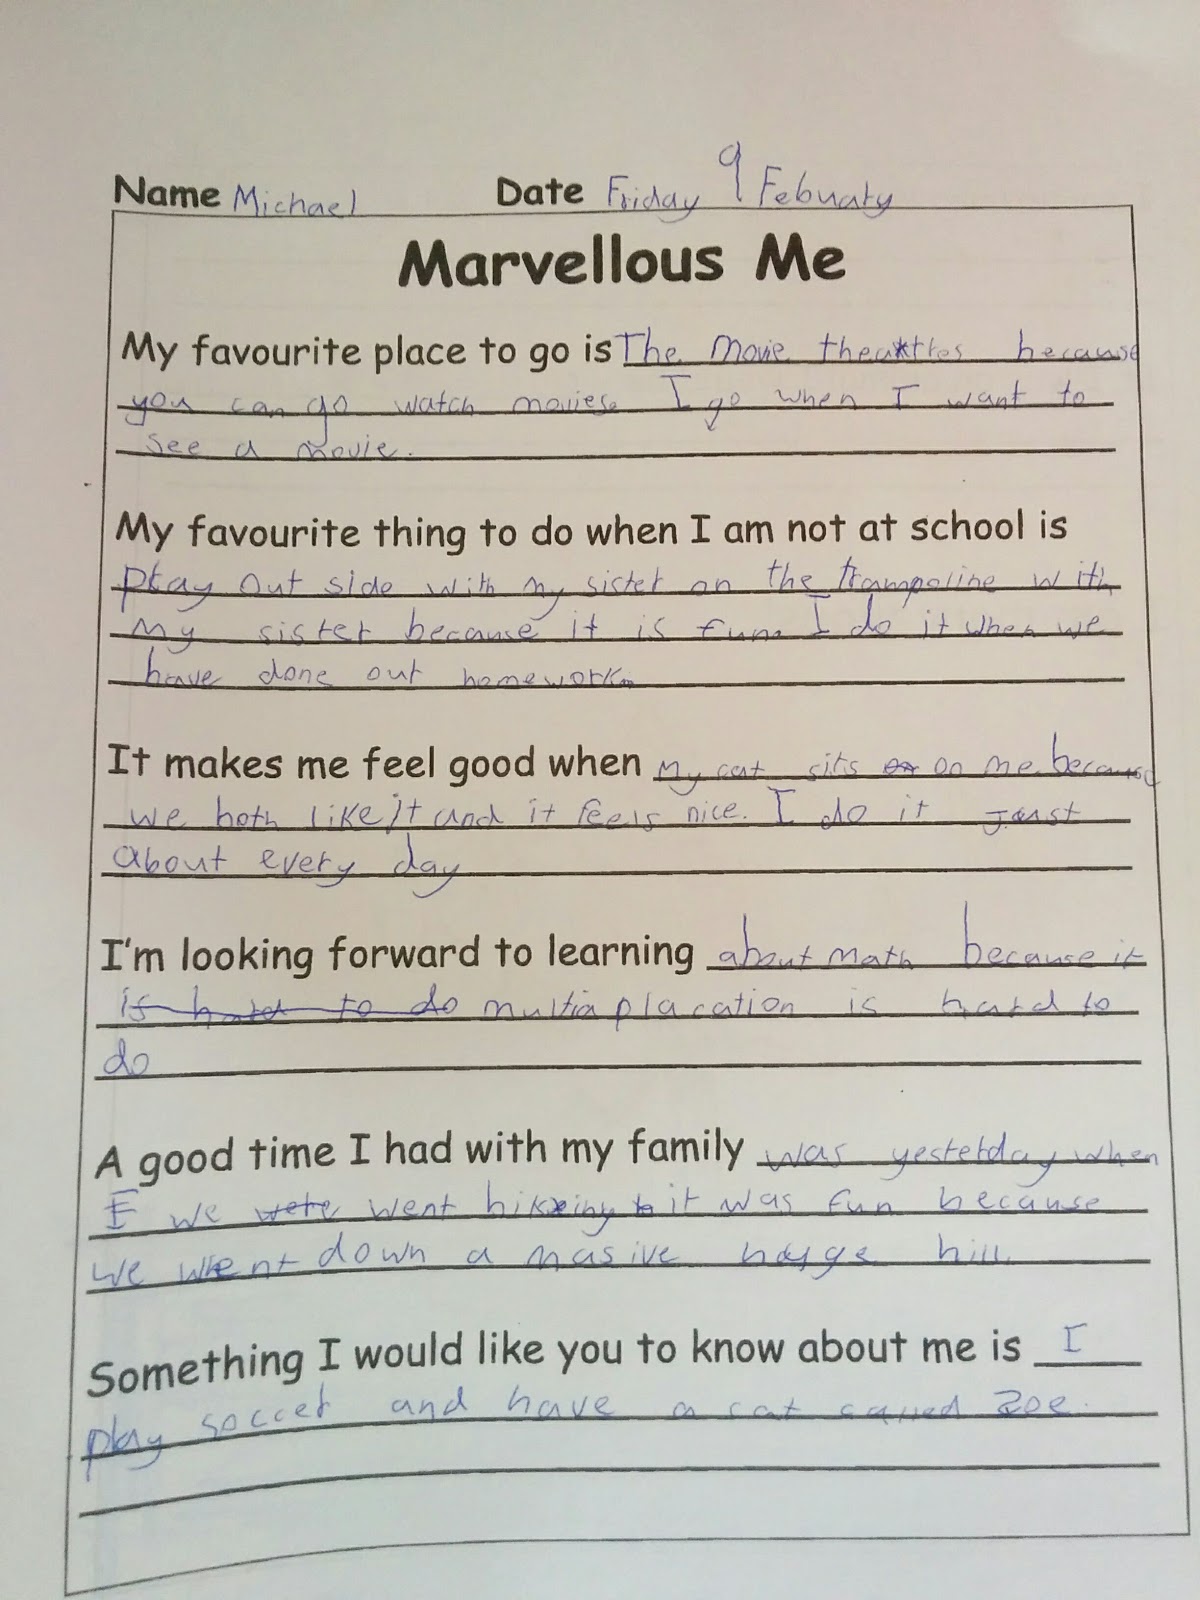 Name Michael Date Friday 9 Febuary
Marvellous Me
My favourite place to go is The movie theattres because
you can go watch movies. I go when I want to
see a movie.
My favourite thing to do when I am not at school is
play out side with my sister on the trampoline with
my sister because it is fun. I do it when we
have done our homework.
It makes me feel good when my cat sits on me because
we both like it and it feels nice. I do it just
about every day
I'm looking forward to learning about math because it
is hard to do multiaplacation is hard to
do
A good time I had with my family was yesterday when
I we were went hikeing it was fun because
we went down a masive huge hill.
Something I would like you to know about me is I
play soccer and have a cat called Zoe.